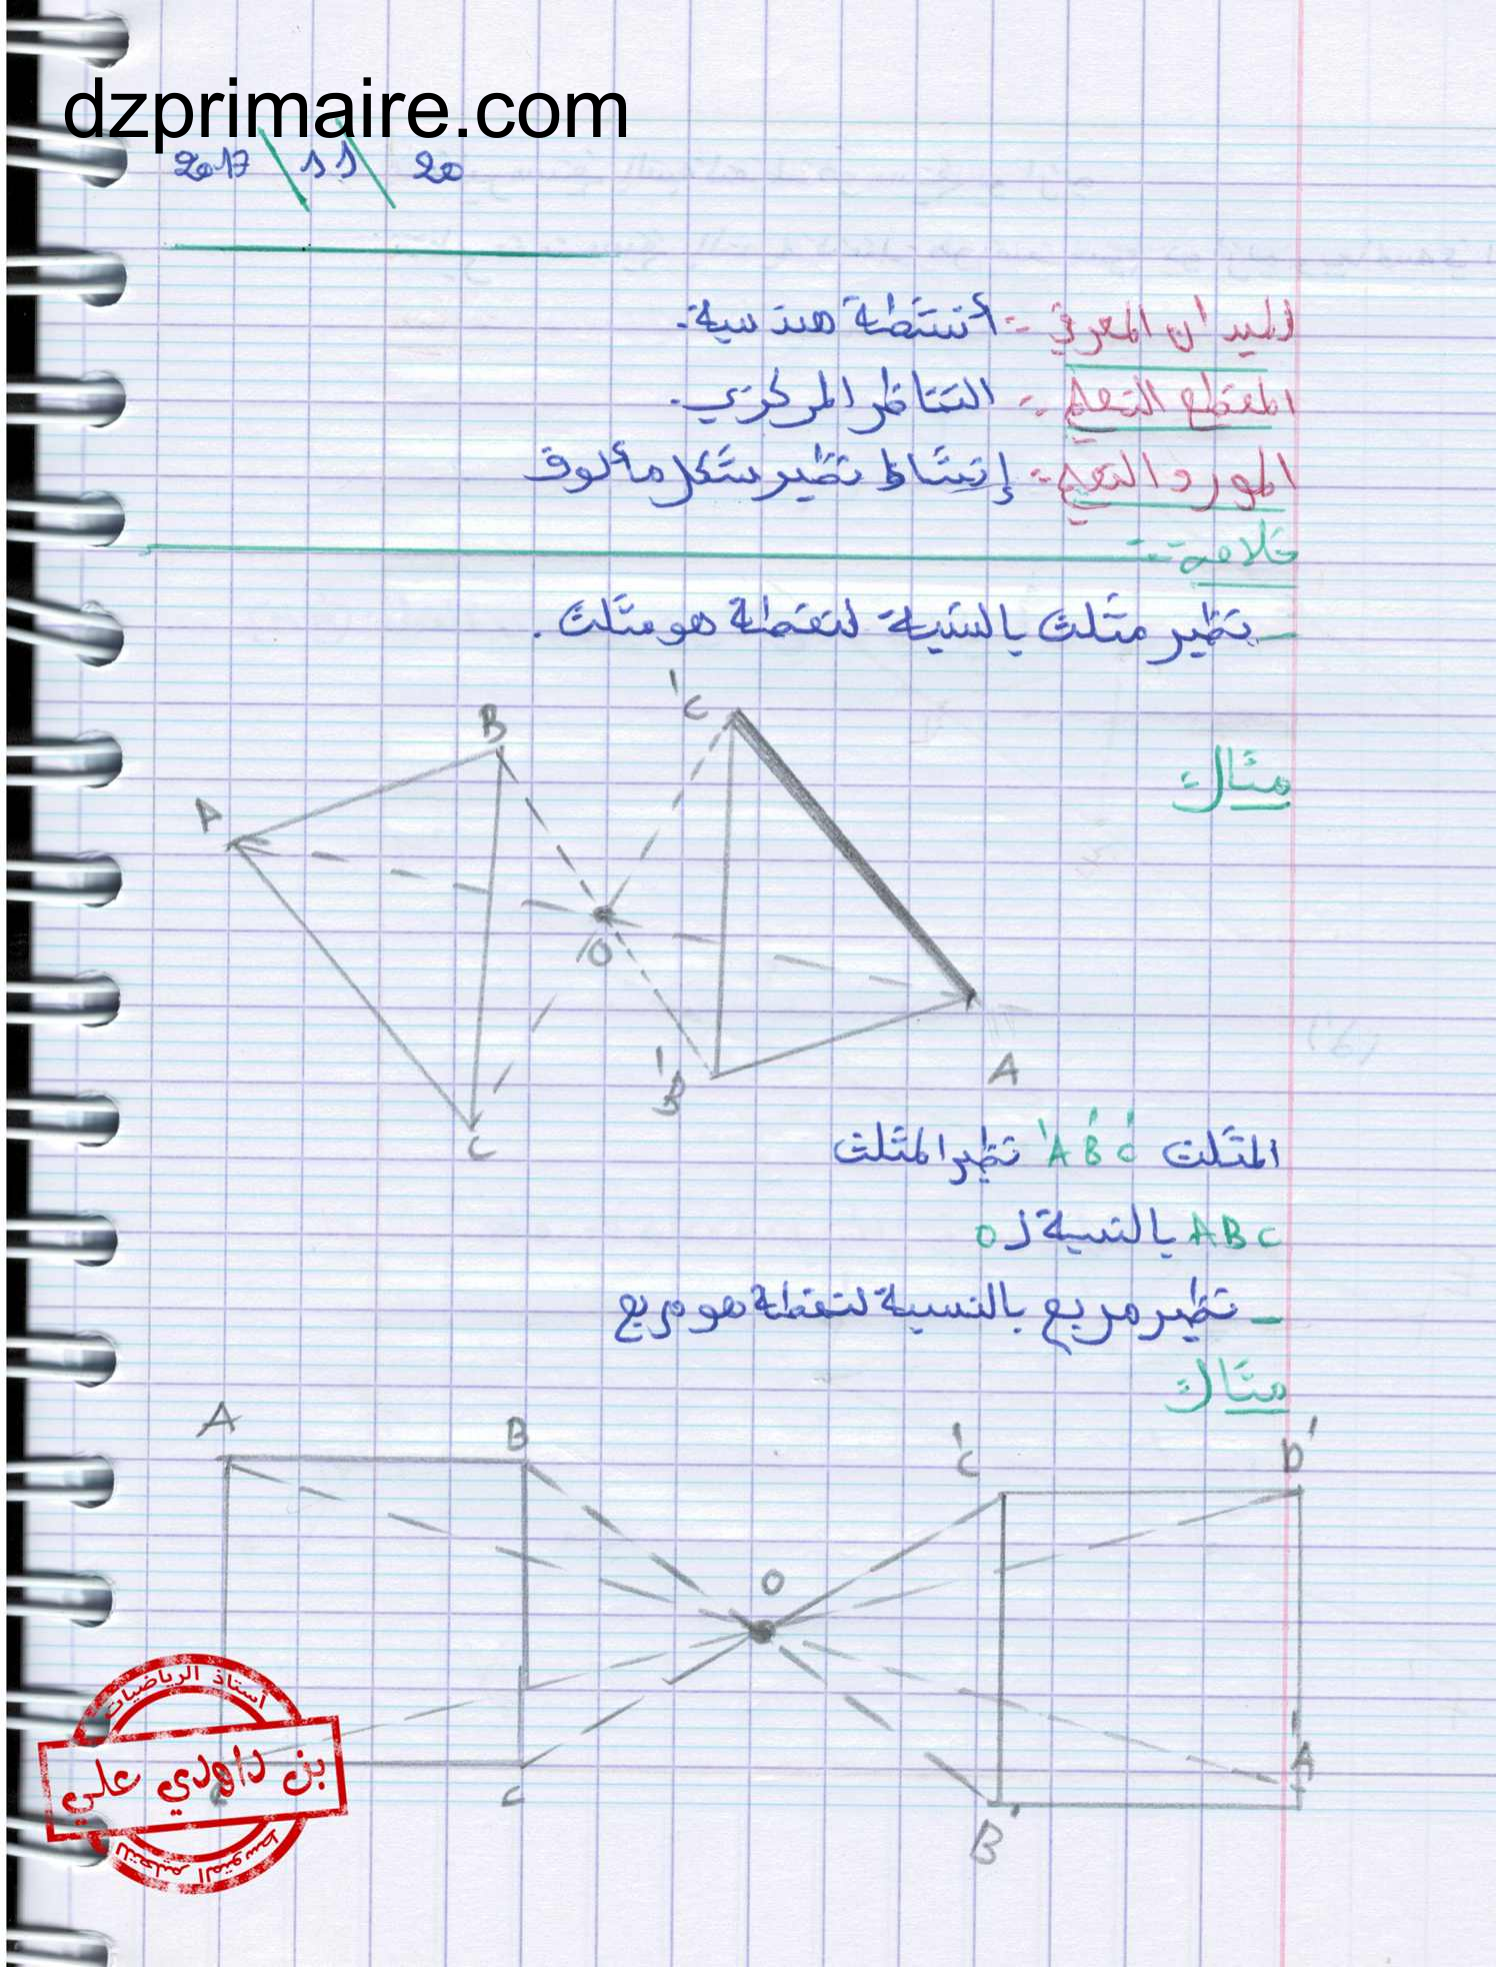 dzprimaire.com
2017 \ 11 \ 20
الميدان المعرفي :- أنشطة هندسية.
المقطع التعلمي :- التناظر المركزي.
المورد التعلمي :- إنشاء نظير شكل مألوف
خلاصة :-
- نظير مثلث بالنسبة لنقطة هو مثلث.
مثال :
C'
B
A
O
B'
A
C
المثلث A'B'C' نظير المثلث
ABC بالنسبة لـ O
- نظير مربع بالنسبة لنقطة هو مربع
مثال :
A B C' D'
O
A'
C
B'
أستاذ الرياضيات
بن داودي علي
للتعليم المتوسط